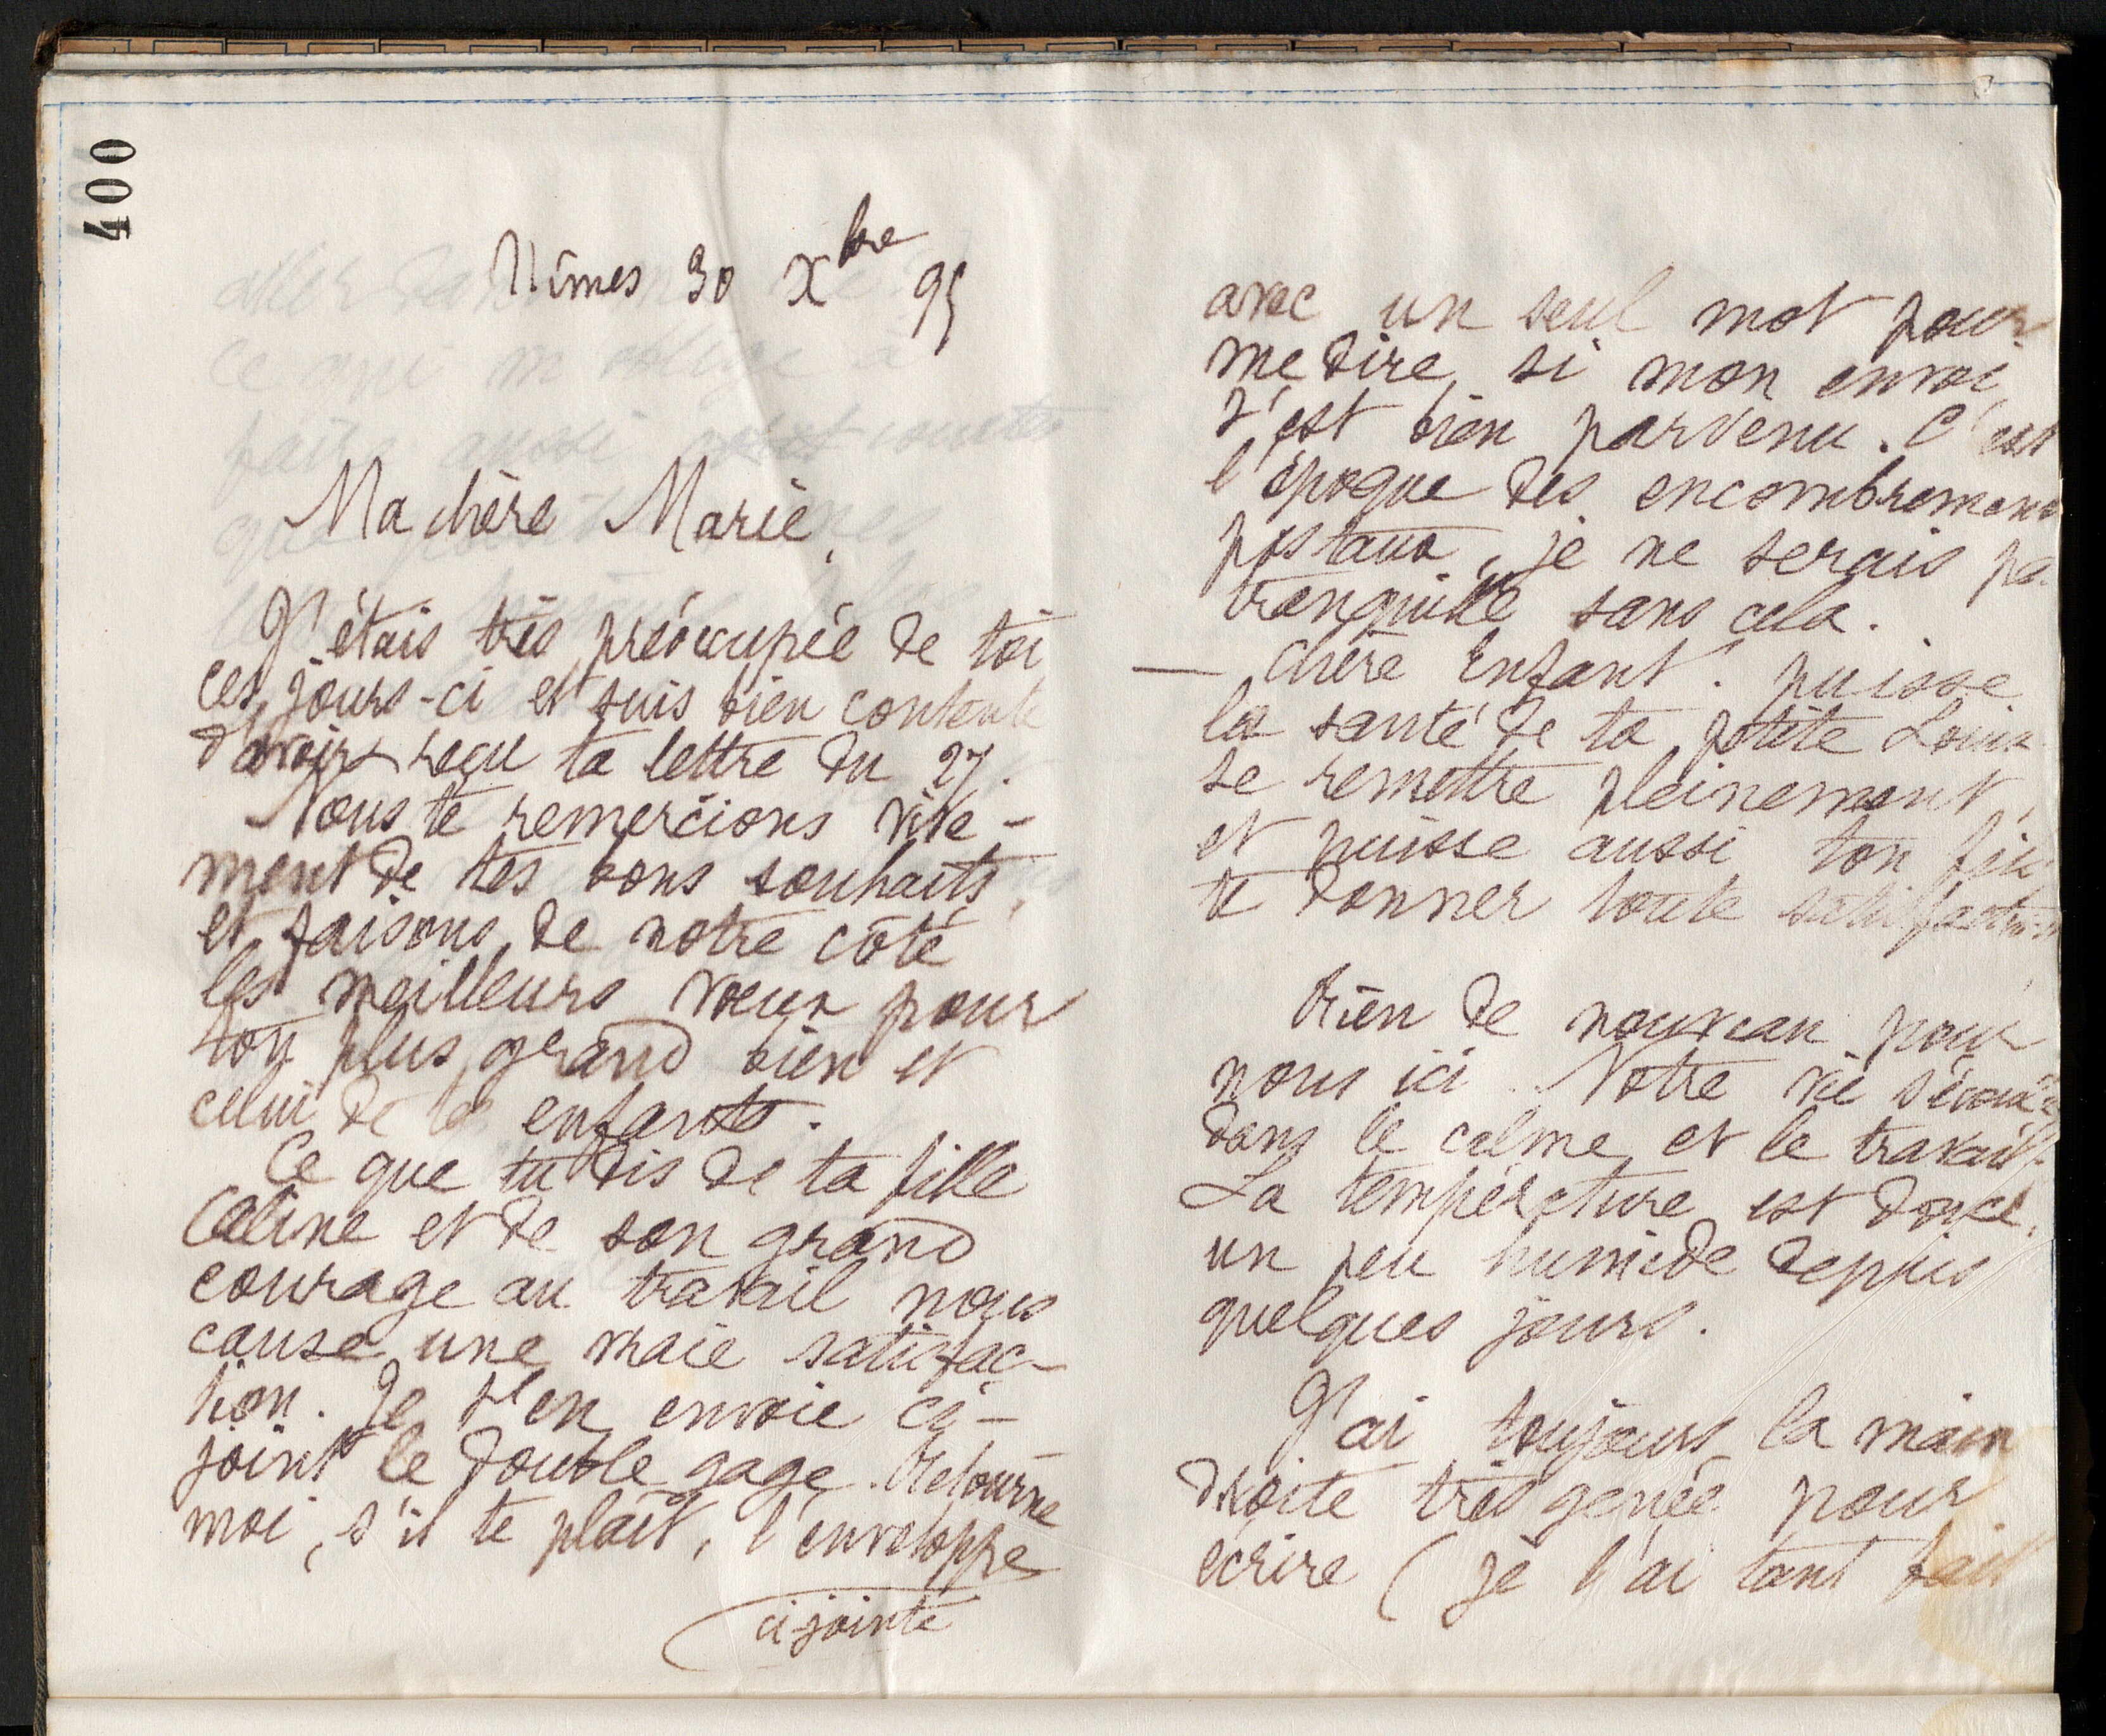 400
Nîmes 30 Xbre 95
Ma chère Marie,
J'étais très préoccupée de toi
ces jours-ci et suis bien contente
d'avoir reçu ta lettre du 27.
Nous te remercions vive-
ment de tes bons souhaits,
et faisons de notre côté
les meilleurs vœux pour
ton plus grand bien et
celui de tes enfants.
Ce que tu dis de ta fille
Céline et de son grand
courage au travail nous
cause une vraie satisfac-
tion. Je t'en envoie ci-
joint le double gage. Retourne
moi, s'il te plaît, l'enveloppe
ci jointe
avec un seul mot pour
me dire si mon envoi
t'est bien parvenu. C'est
l'époque des encombrements
postaux, je ne serais pa
tranquille sans cela.
— Chère Enfant! puisse
la santé de ta petite
se remettre pleinement,
et puisse aussi ton fils
te donner toute satisfaction
Rien de nouveau pour
nous ici. Notre vie s'écoule
dans le calme et le travail.
La température est douce,
un peu humide depuis
quelques jours.
J'ai toujours la main
droite très genée pour
écrire (je l'ai tant fait